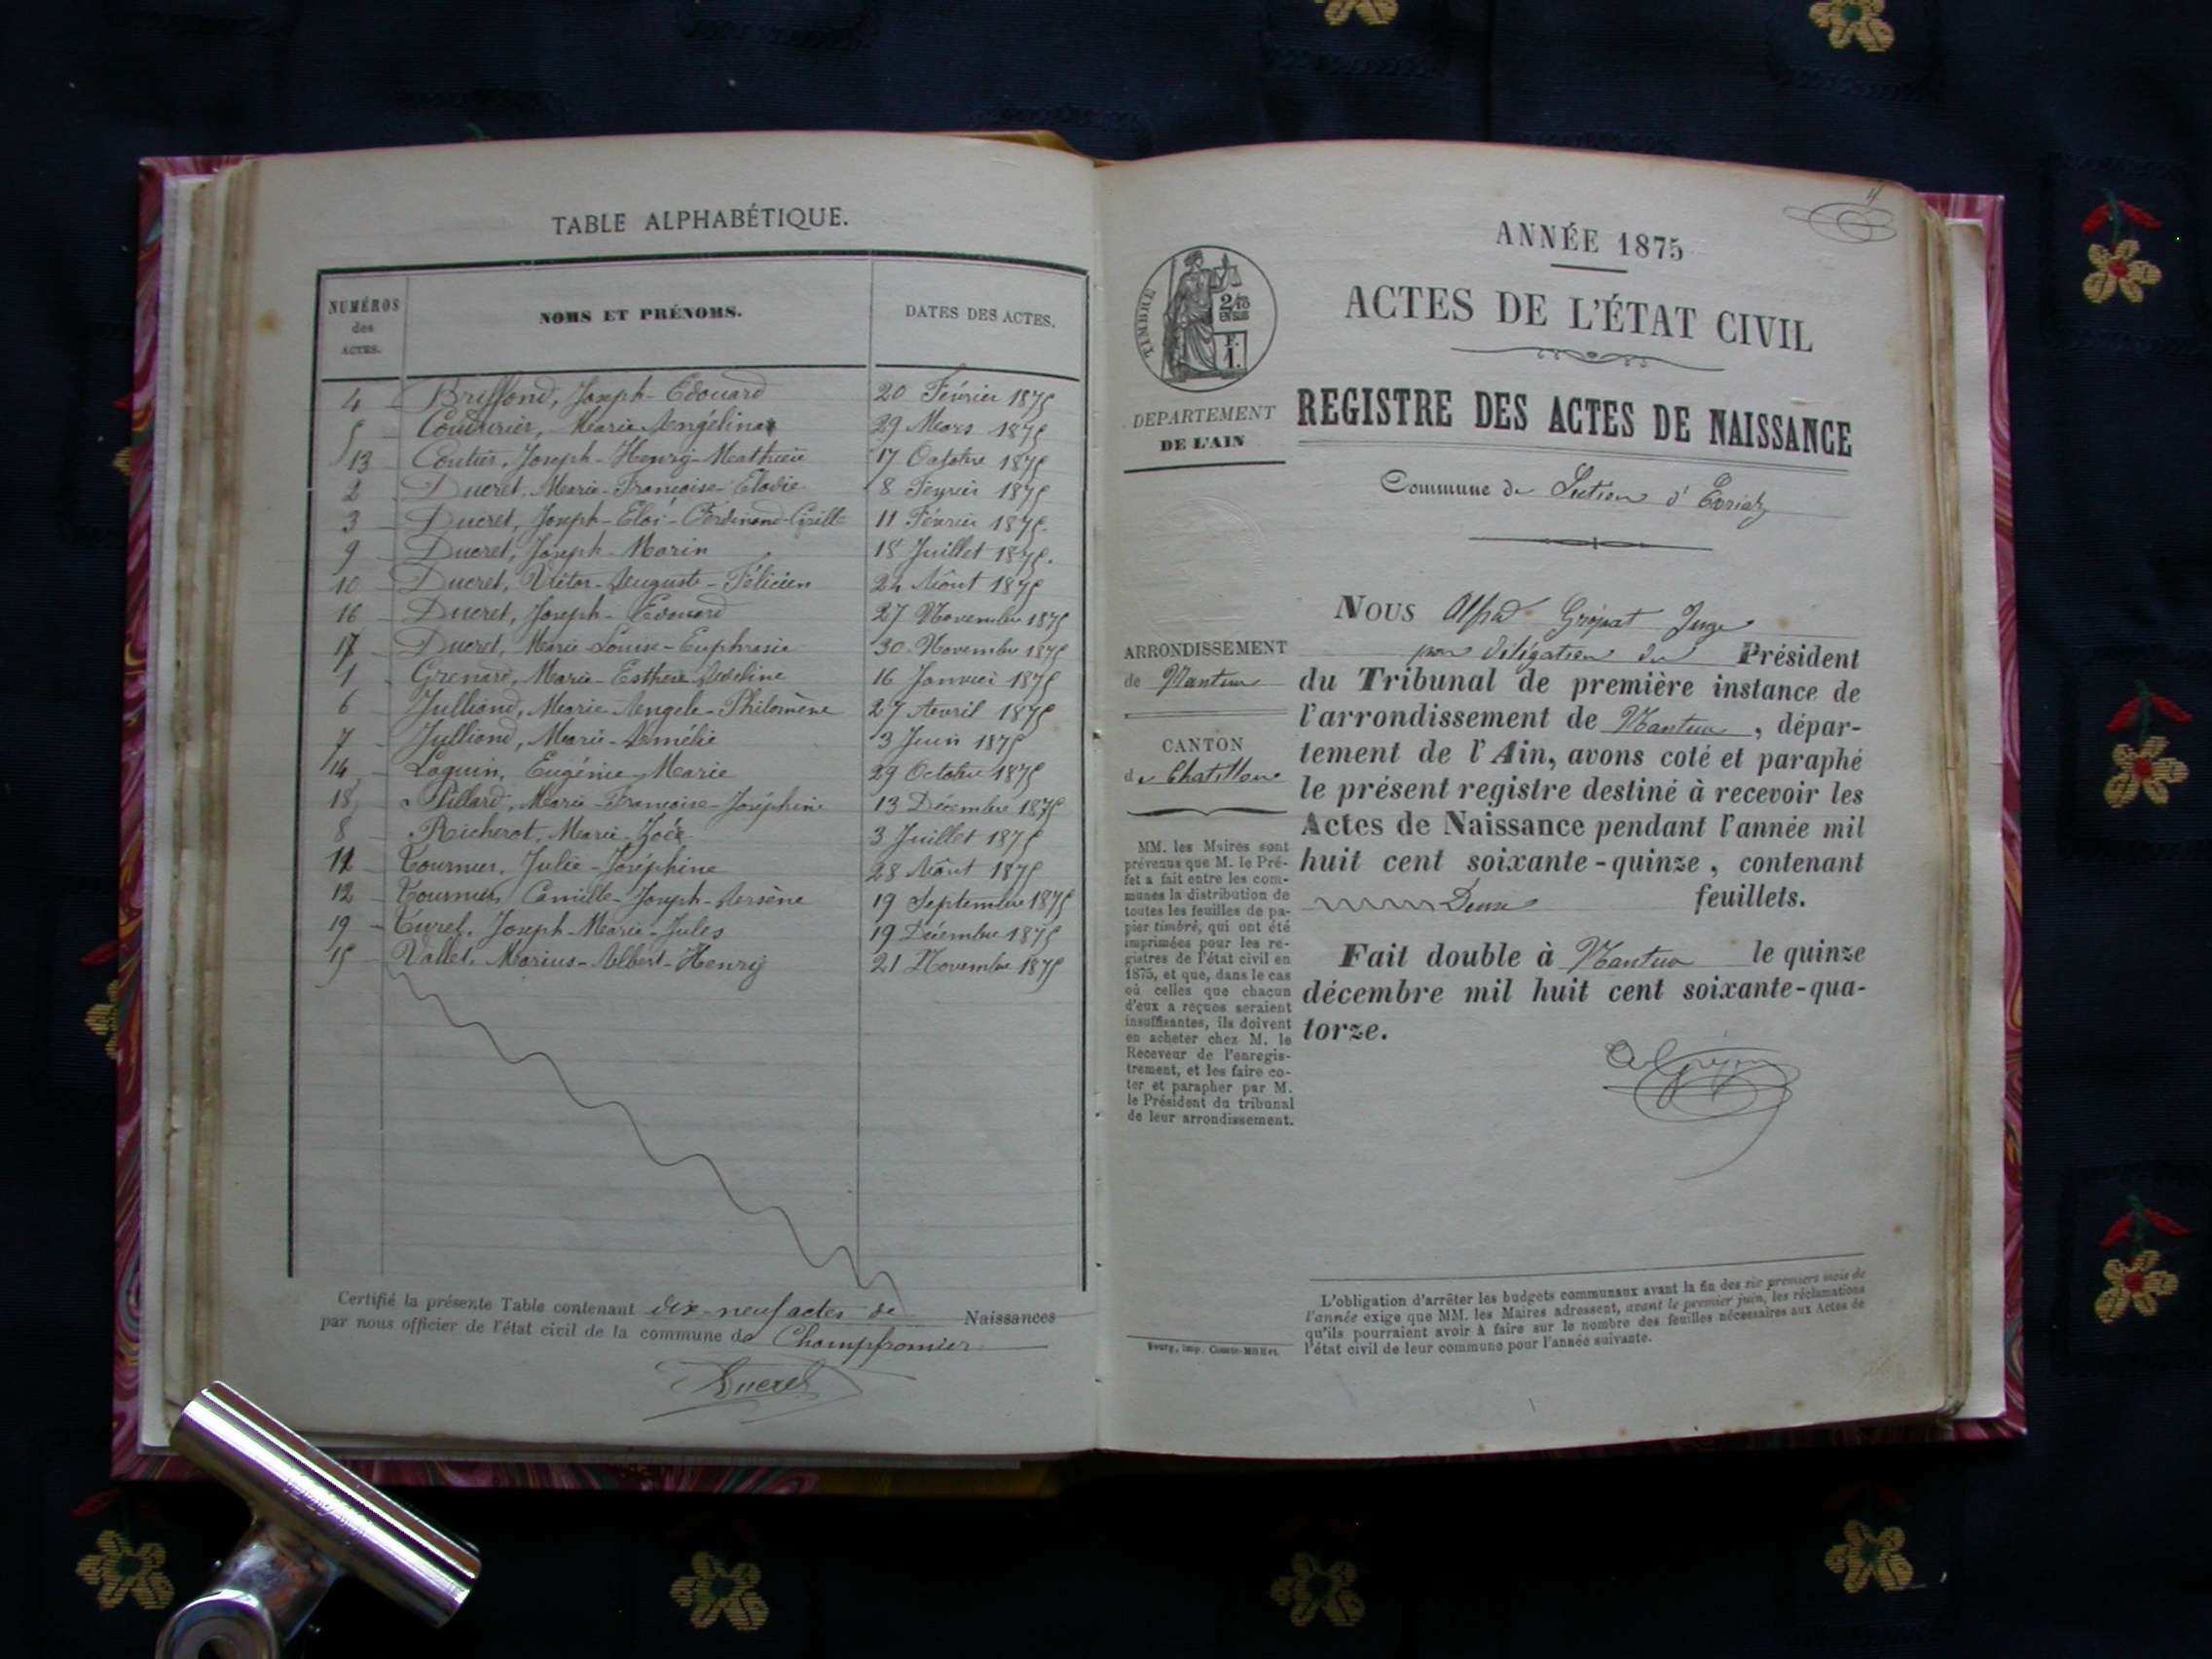 TABLE ALPHABÉTIQUE.
NUMÉROS
des
ACTES.
NOMS ET PRÉNOMS.
DATES DES ACTES.
4 Bruffond, Joseph-Edouard 20 Février 1875
5 Coudurier, Marie Angélina 29 Mars 1875
13 Coutier, Joseph-Henry-Mathieu 17 Octobre 1875
2 Ducret, Marie-Françoise-Elodie 8 Février 1875
3 Ducret, Joseph-Eloi-Ferdinand-Cyrille 11 Février 1875.
9 Ducret, Joseph-Marin 18 Juillet 1875.
10 Ducret, Victor-Auguste-Félicien 24 Août 1875
16 Ducret, Joseph-Edouard 27 Novembre 1875
17 Ducret, Marie-Louise-Euphrasie 30 Novembre 1875
1 Grenard, Marie-Esther Adeline 16 Janvier 1875
6 Julliand, Marie Angele-Philomène 27 Avril 1875
7 Julliand, Marie-Amélie 3 Juin 1875
14 Loquin, Eugénie Marie 29 Octobre 1875
18 Pillard, Marie-Françoise-Joséphine 13 Décembre 1875
8 Richerot, Marie-Zoée 3 Juillet 1875
11 Tournier, Julie-Joséphine 28 Août 1875
12 Tournier, Camille-Joseph-Arsène 19 Septembre 1875
19 Turel, Joseph-Marie-Jules 19 Décembre 1875
15 Vallet, Marius-Albert-Henry 21 Novembre 1875
Certifié la présente Table contenant dix-neuf actes de Naissances
par nous officier de l'état civil de la commune de Champfromier
Ducret
ANNÉE 1875
ACTES DE L'ÉTAT CIVIL
REGISTRE DES ACTES DE NAISSANCE
TIMBRE
2/10
EN SUS
F.
1.
DEPARTEMENT
DE L'AIN
Commune de Section d'Evriat
ARRONDISSEMENT
de Nantua
CANTON
de Chatillon
MM. les Maires sont
prévenus que M. le Pré-
fet a fait entre les com-
munes la distribution de
toutes les feuilles de pa-
pier timbré, qui ont été
imprimées pour les re-
gistres de l'état civil en
1875, et que, dans le cas
où celles que chacun
d'eux a reçues seraient
insuffisantes, ils doivent
en acheter chez M. le
Receveur de l'enregis-
trement, et les faire co-
ter et parapher par M.
le Président du tribunal
de leur arrondissement.
Nous Alfred Juge
par délégation du Président
du Tribunal de première instance de
l'arrondissement de Nantua, dépar-
tement de l'Ain, avons coté et paraphé
le présent registre destiné à recevoir les
Actes de Naissance pendant l'année mil
huit cent soixante-quinze, contenant
Deux feuillets.
Fait double à Nantua le quinze
décembre mil huit cent soixante-qua-
torze.
L'obligation d'arrêter les budgets communaux avant la fin des six premiers mois de
l'année exige que MM. les Maires adressent, avant le premier juin, les réclamations
qu'ils pourraient avoir à faire sur le nombre des feuilles nécessaires aux Actes de
l'état civil de leur commune pour l'année suivante.
Bourg, imp. Comte-Milliet